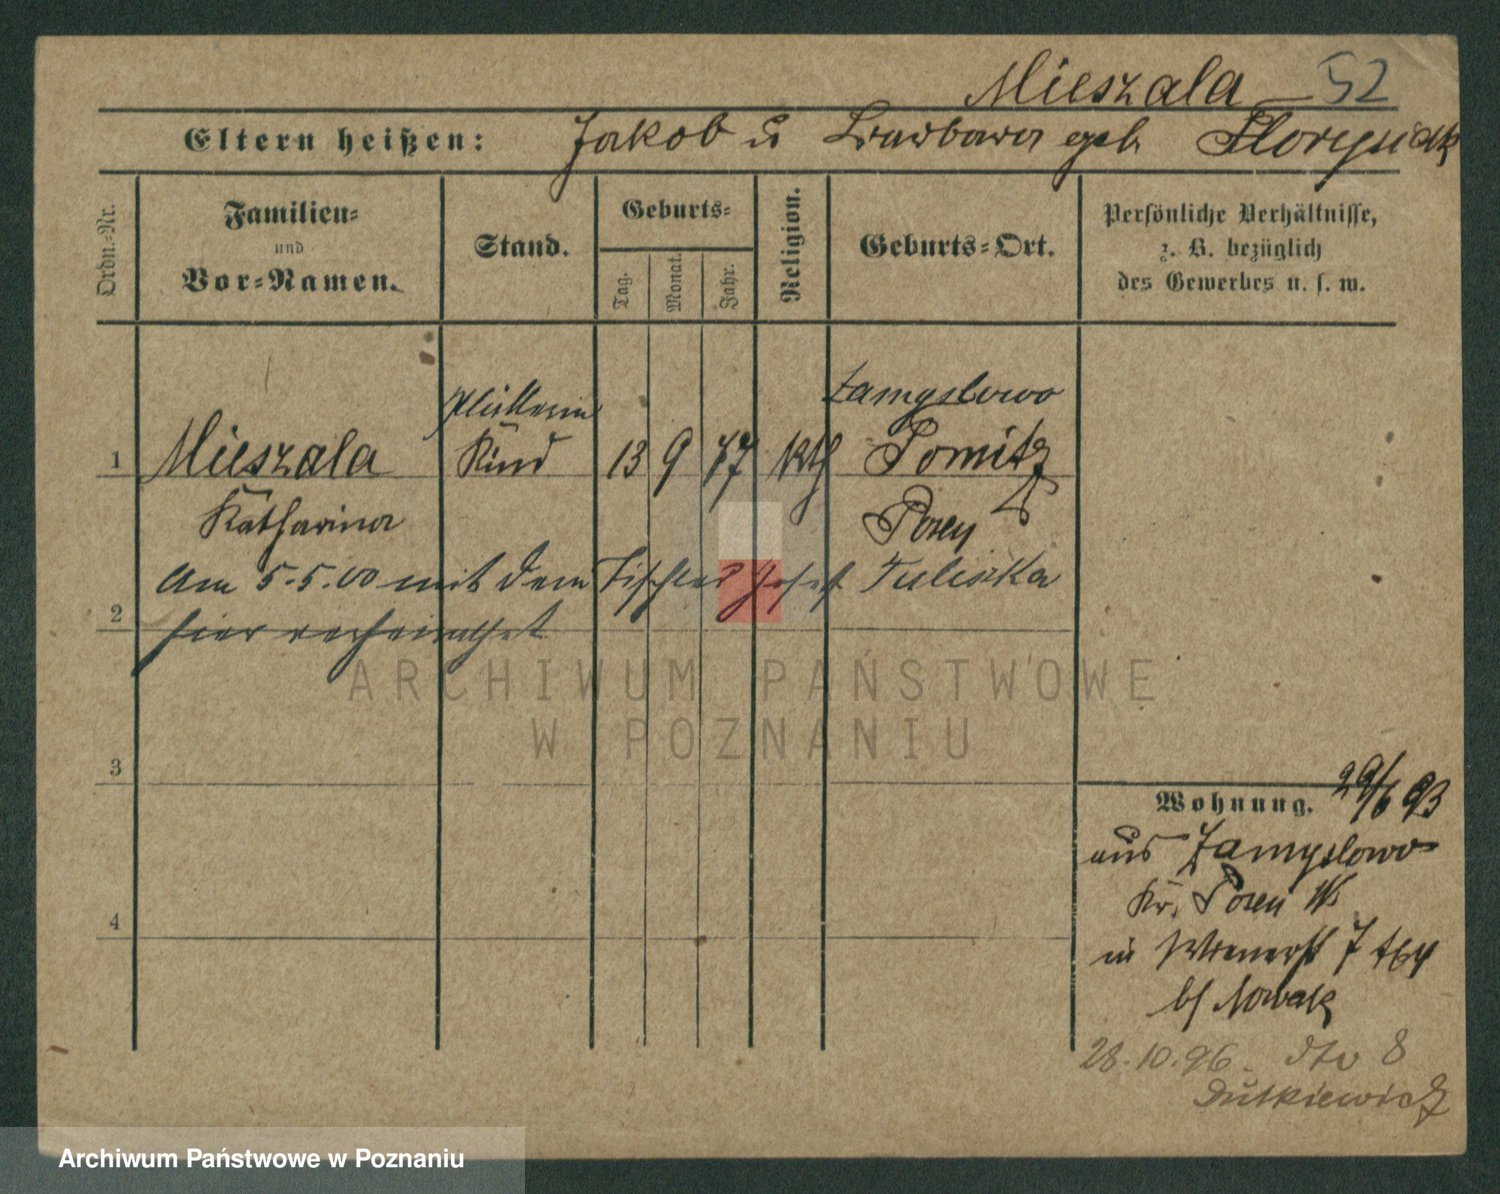 Mieszala 52
Eltern heißen: Jakob u Barbara geb
Ordn.-Nr.
Familien-
und
Vor-Namen.
Stand.
Geburts-
Tag.
Monat.
Jahr.
Religion.
Geburts-Ort.
Persönliche Verhältnisse,
z. B. bezüglich
des Gewerbes u. s. w.
Plätterin
Zamyslowo
1 Mieszala Kind 13 9 77 kth
Katharina Posen
am 5.5.00 mit dem Tischler Josef Tuliszka
2
hier verheirathet
3
4
Wohnung. 29/6 93
aus Zamyslowo
Kr. Posen W
in Wienerstr 7
bei Nowak
28.10.96. dto 8
Dutkiewicz
ARCHIWUM PAŃSTWOWE
W POZNANIU
Archiwum Państwowe w Poznaniu